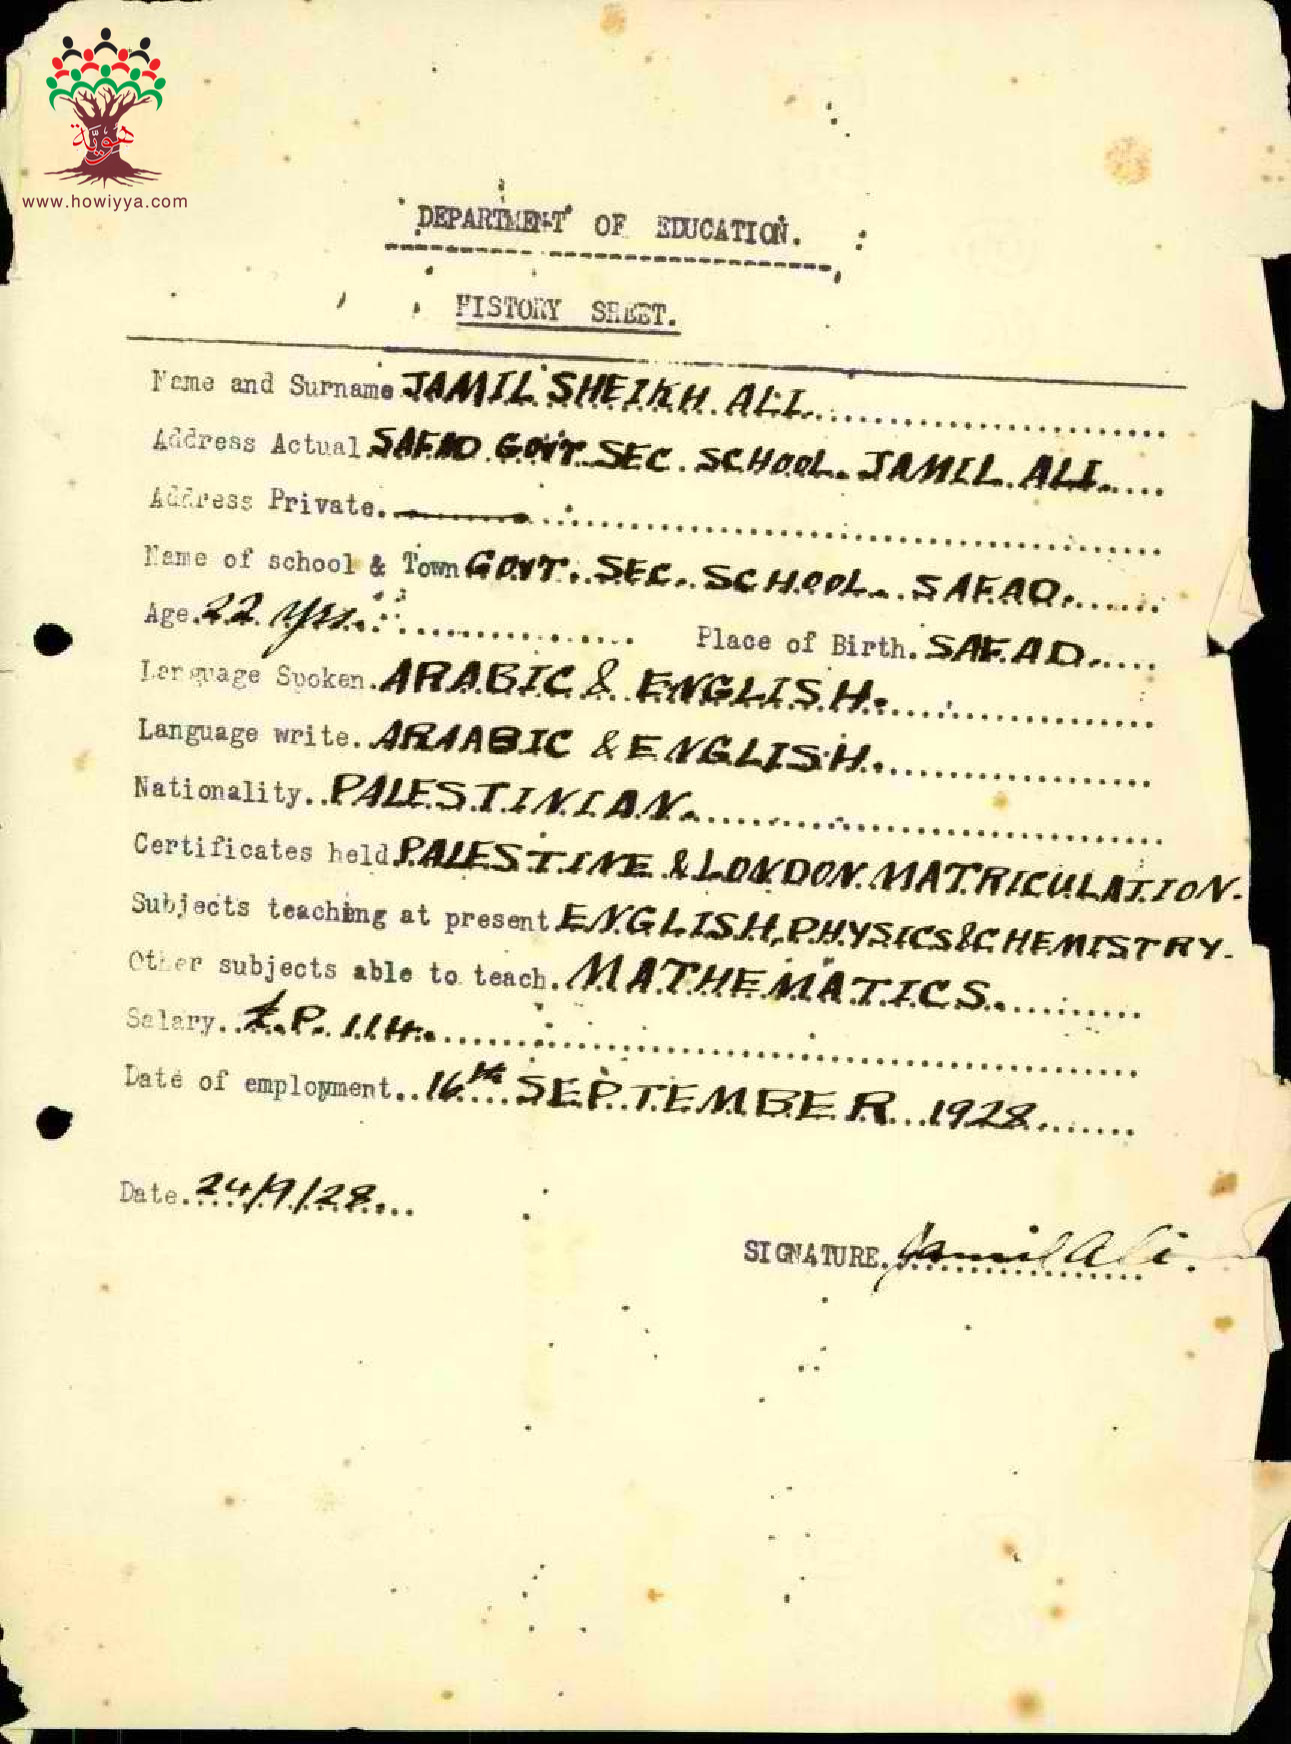 هويّة
www.howiyya.com
DEPARTMENT OF EDUCATION.
HISTORY SHEET.
Name and Surname JAMIL SHEIKH ALI
Address Actual SAFAD GOVT. SEC. SCHOOL. JAMIL ALI.
Address Private.
Name of school & Town GOVT. SEC. SCHOOL. SAFAD.
Age. 22 yrs. Place of Birth. SAFAD.
Language Spoken. ARABIC & ENGLISH.
Language write. ARAABIC & ENGLISH.
Nationality.. PALESTINIAN.
Certificates held PALESTINE & LONDON MATRICULATION.
Subjects teaching at present ENGLISH, PHYSICS & CHEMISTRY.
Other subjects able to teach. MATHEMATICS.
Salary.. £.P. 114.
Date of employment.. 16th SEPTEMBER 1928.
Date. 24/9/28.
SIGNATURE. Jamil Ali.